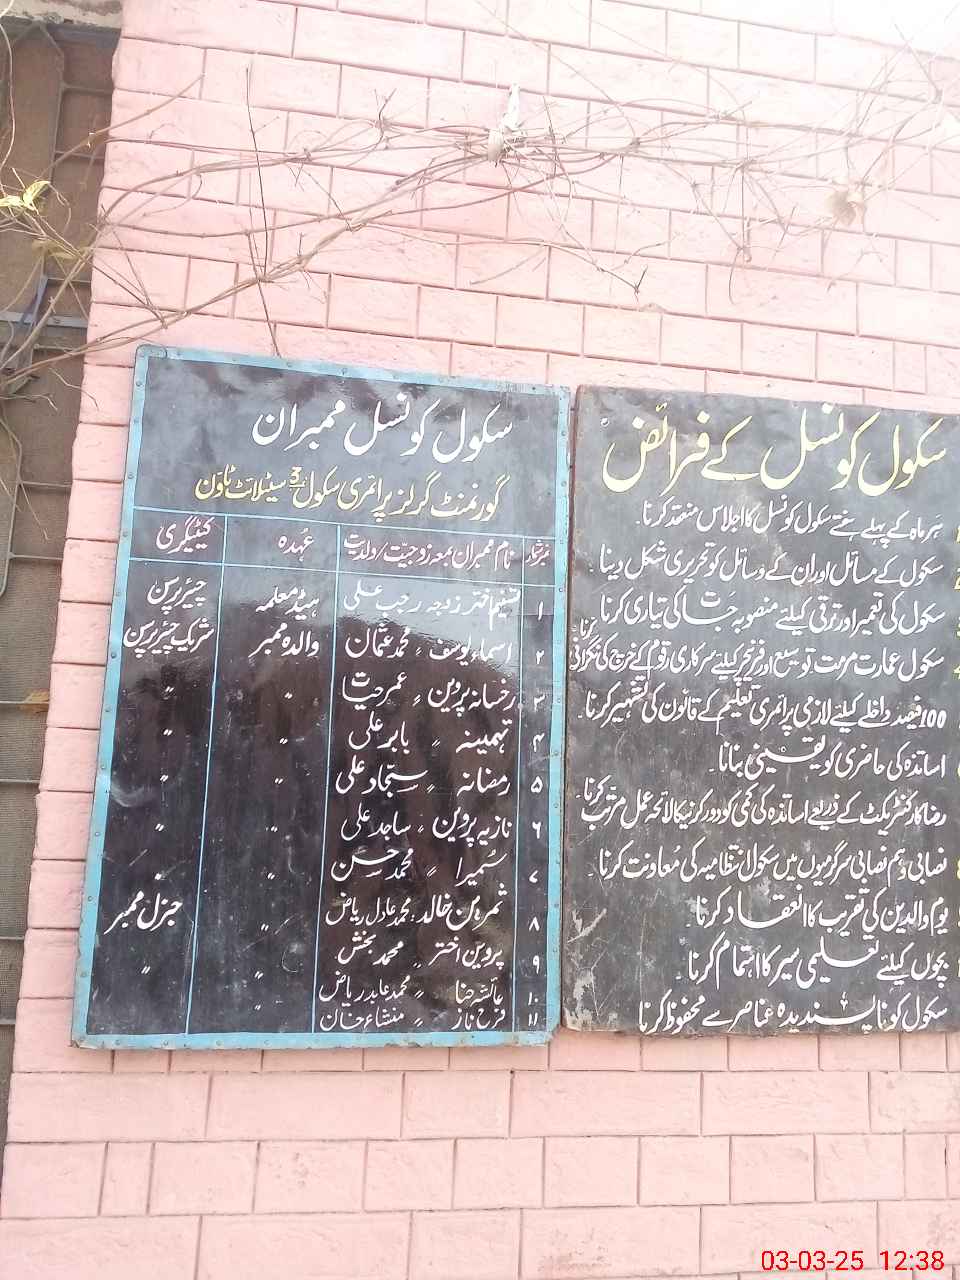 سکول کونسل ممبران
گورنمنٹ گرلز پرائمری سکول 3 سیٹلائٹ ٹاؤن
نمبرشمار نام ممبران بمعہ زوجیت/ولدیت عہدہ کیٹیگری
۱ تسنیم اختر زوجہ رجب علی ہیڈ معلمہ چیئرپرسن
۲ اسماء یوسف 〃 محمد عثمان والدہ ممبر شریک چیئرپرسن
۳ رخسانہ پروین 〃 عمر حیات 〃 〃
۴ تہمینہ 〃 بابر علی 〃 〃
۵ رمضانہ 〃 سجاد علی 〃 〃
۶ نازیہ پروین 〃 ساجد علی 〃 〃
۷ سُمیرا 〃 محمد حسن 〃 〃
۸ ثمرین خالد 〃 محمد عادل ریاض 〃 جنرل ممبر
۹ پروین اختر 〃 محمد بخش 〃 〃
۱۰ عائشہ رضا 〃 محمد عابد ریاض
۱۱ فرح ناز 〃 منشاء خان
سکول کونسل کے فرائض
ہر ماہ کے پہلے ہفتے سکول کونسل کا اجلاس منعقد کرنا۔
سکول کے مسائل اور ان کے وسائل کو تحریری شکل دینا۔
سکول کی تعمیر اور ترقی کیلئے منصوبہ جات کی تیاری کرنا۔
سکول عمارت مرمت، توسیع اور فرنیچر کیلئے سرکاری رقوم کے خرچ کی نگرانی کرنا۔
100 فیصد داخلے کیلئے لازمی پرائمری تعلیم کے قانون کی تشہیر کرنا۔
اساتذہ کی حاضری کو یقینی بنانا۔
رضاکار کنٹریکٹ کے ذریعے اساتذہ کی کمی کو دور کرنیکا لائحہ عمل مرتب کرنا۔
نصابی و ہم نصابی سرگرمیوں میں سکول انتظامیہ کی مُعاونت کرنا۔
یوم والدین کی تقریب کا انعقاد کرنا۔
بچوں کیلئے تعلیمی سیر کا اہتمام کرنا۔
سکول کو ناپسندیدہ عناصر سے محفوظ کرنا
03-03-25 12:38